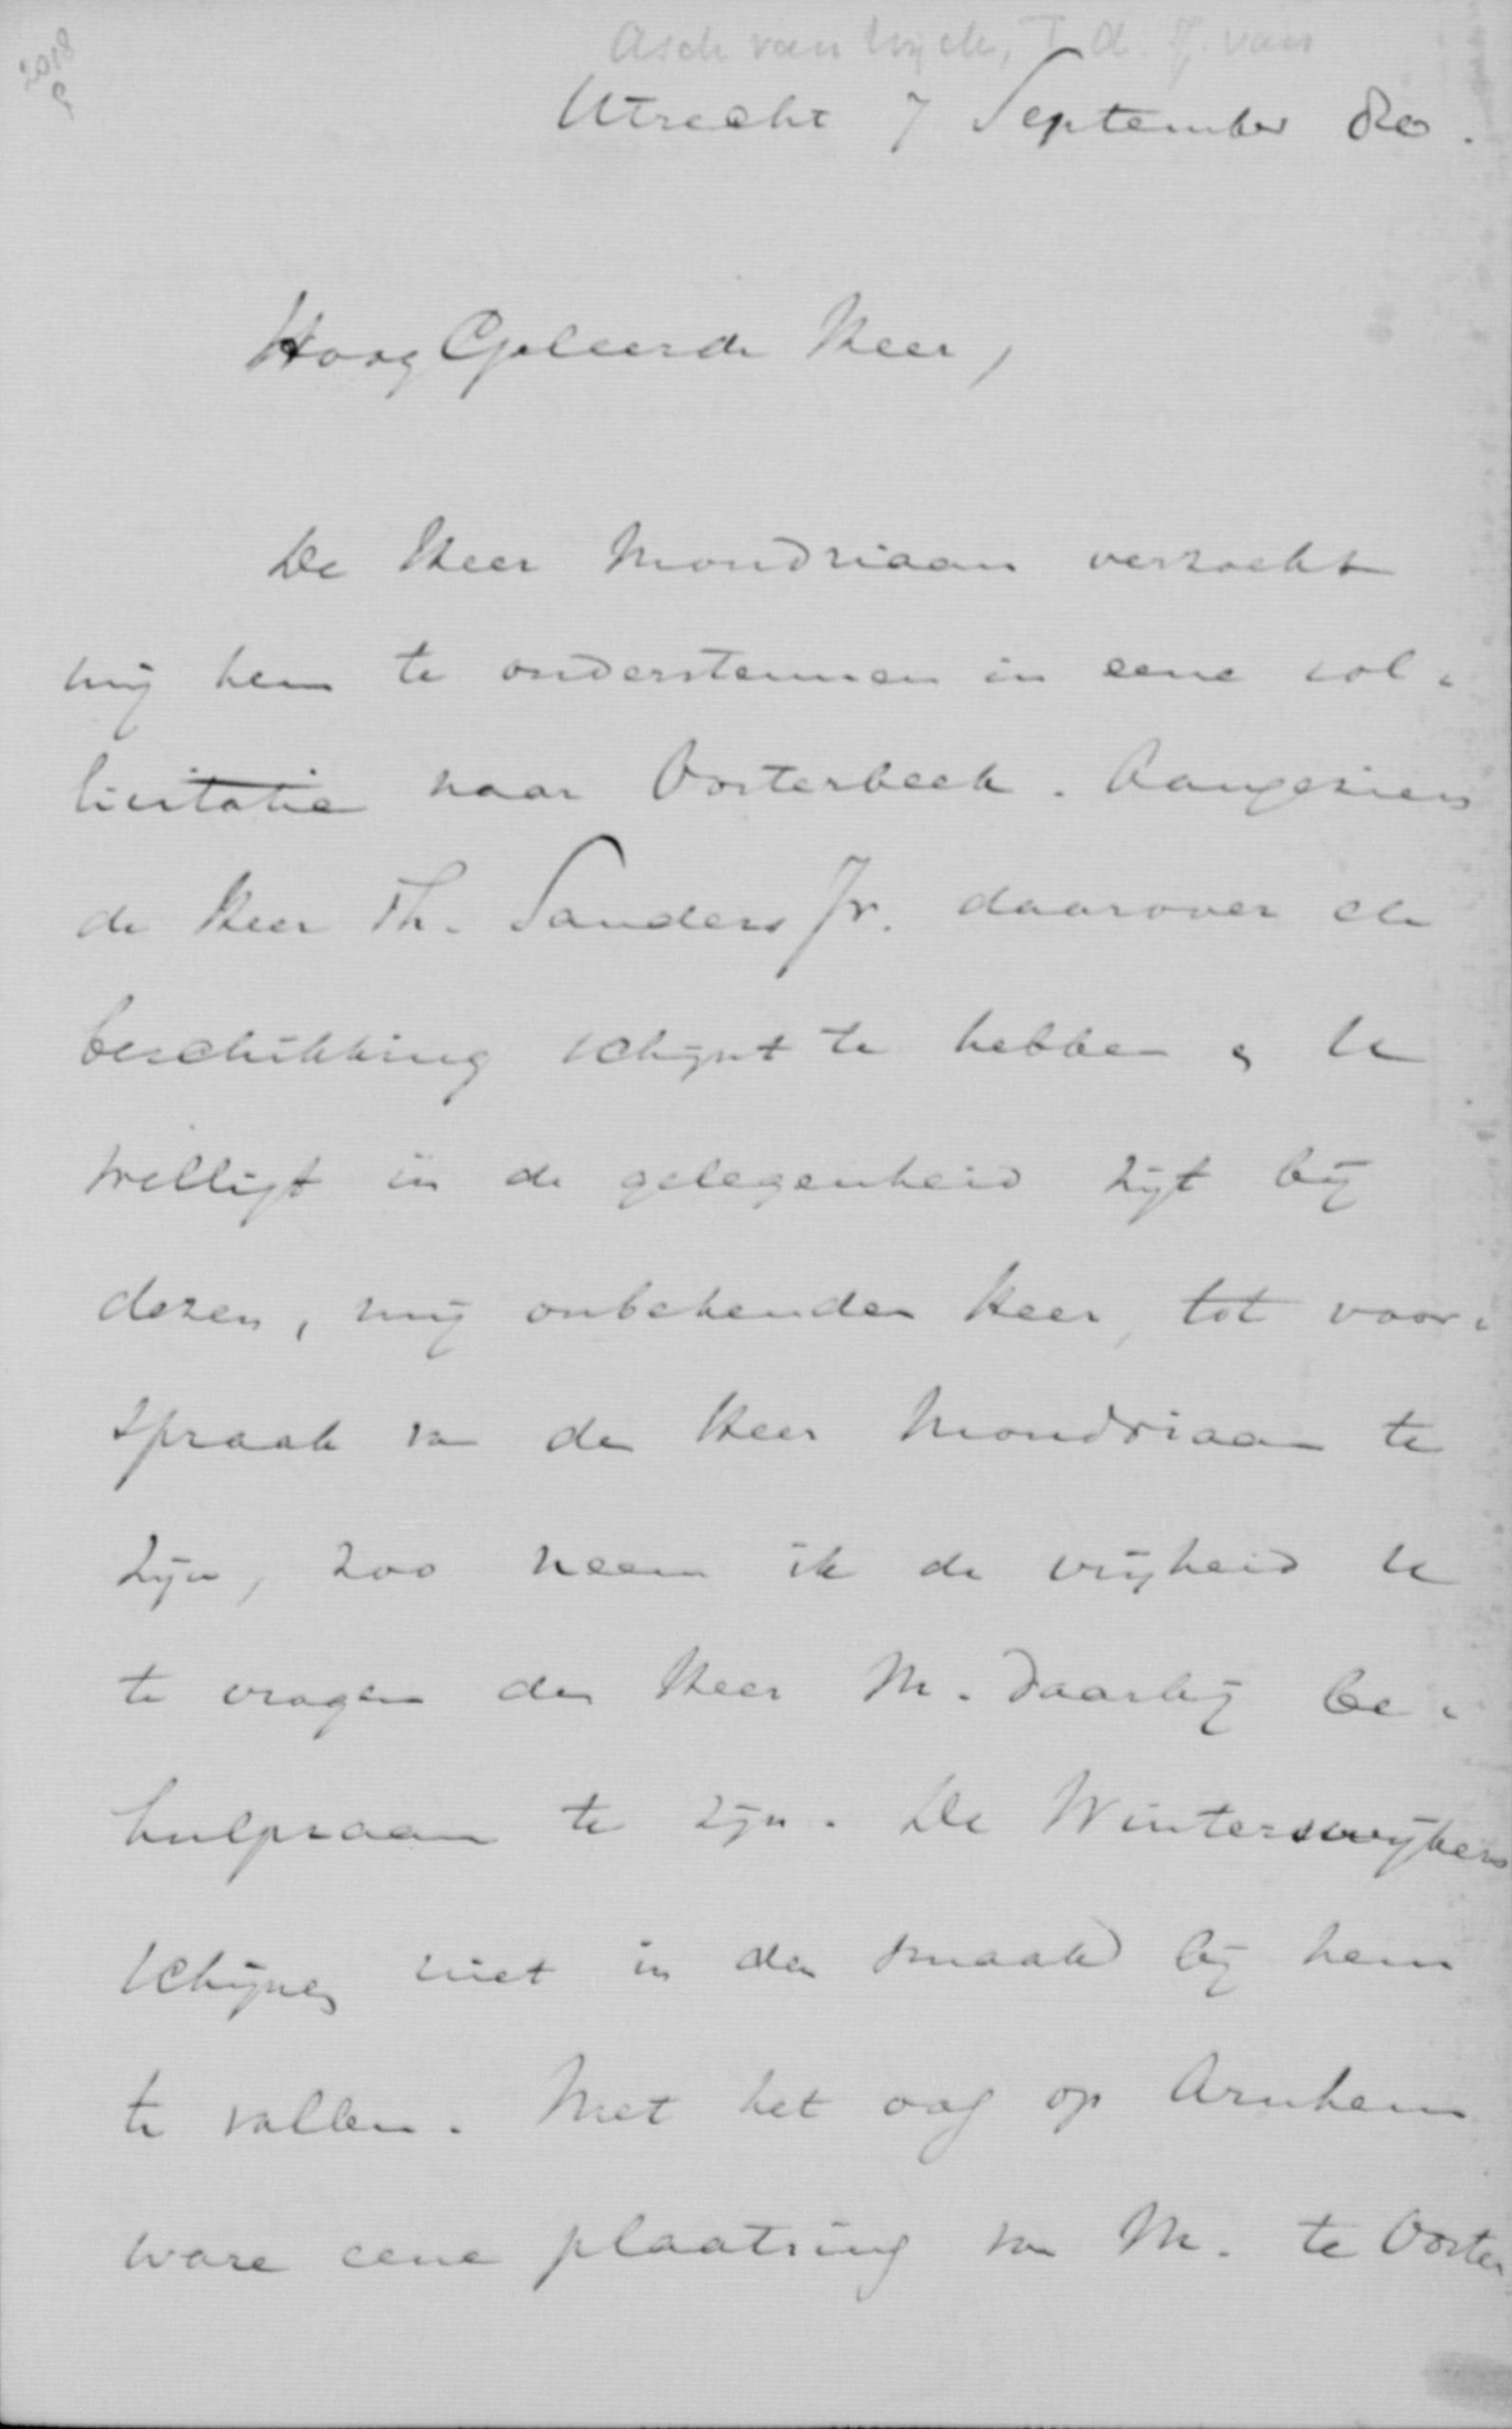 2018
Asch van Wijck, T. A. J. van
Utrecht 7 September 80.
HoogGeleerde Heer,
De Heer Mondriaan verzocht
mij hem te ondersteunen in eene sol-
licitatie naar Oosterbeek. Aangezien
de Heer Th. Sanders Jr. daarover de
beschikking schijnt te hebben & U
welligt in de gelegenheid zijt bij
dezen, mij onbekenden Heer, tot voor-
spraak van den Heer Mondriaan te
zijn, zoo neem ik de vrijheid U
te vragen den Heer M. daarbij be-
hulpzaam te zijn. De Winterswijkers
schijnen niet in den smaak bij hem
te vallen. Met het oog op Arnhem
ware eene plaatsing van M. te Ooster